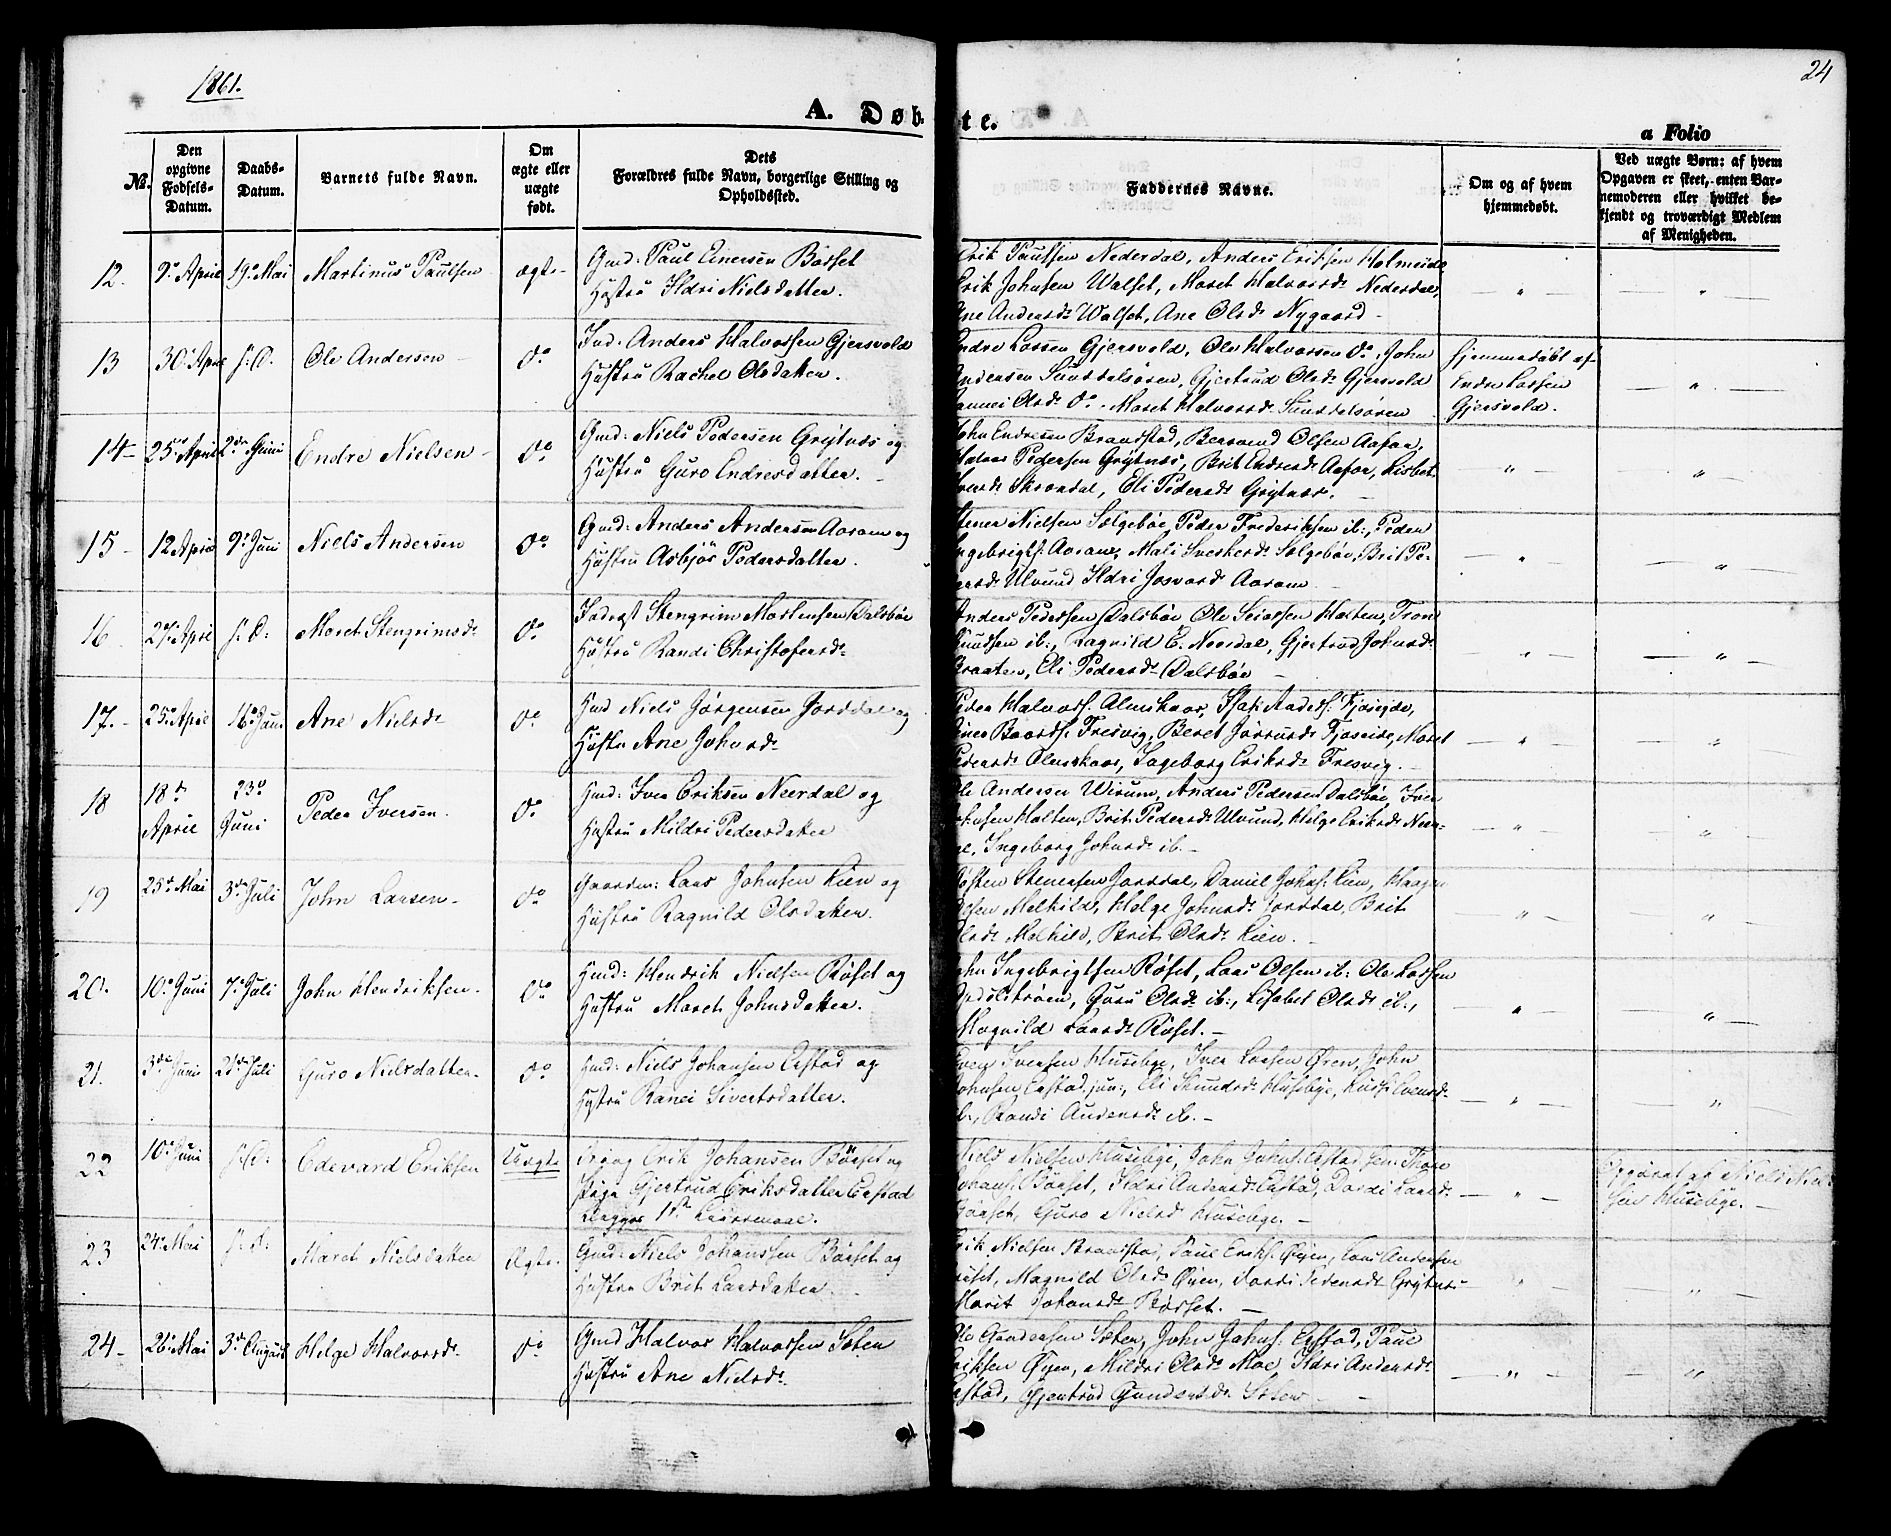 1861.
24
A. Døbte.
a Folio
No.
Den opgivne Fødsels-Datum.
Daabs-Datum.
Barnets fulde Navn.
Om ægte eller uægte født.
Dets Forældres fulde Navn, borgerlige Stilling og Opholdssted.
Faddernes Navne.
Om og af hvem hjemmedøbt.
Ved uægte Børn: af hvem Opgaven er skeet, enten Barnemoderen eller hvilket bekjendt og troværdigt Medlem af Menigheden.
12. 9de April 19de Mai Martinus Paulsen ægte
Gmd: Paul Einersen Børset
Hustru Ildri Nielsdatter.
Erik Paulsen Nederdal, Anders Eriksen Holmeide
Erik Johnsen Walset, Maret Halvorsd. Nederdal,
Ane Andersd. Walset, Ane Olsd. Nygaard
13 30te April s: D. Ole Andersen do
Ind: Anders Halvorsen Gjersvold
Hustru Rachel Olsdatter.
Endre Larsen Gjersvold, Ole Halvorsen do, John
Andersen Sundalsøren, Gjertrud Olsd. Gjersvold
Rannei Olsd. do. Maret Halvorsd. Sundalsøren
Hjemmedøbt af
Endre Larsen
Gjersvold.
14 25de April 2den Juni Endre Nielsen do
Gmd: Niels Pedersen Grytnæs og
Hustru Guro Endresdatter.
John Endresen Brandstad, Bersvend Olsen Aafar,
Pedersen Grytnæs, Brit Endresd. Aafar, Lisbet
Skrondal, Eli Pedersd. Grytnæs.
15 12 April 9de Juni Niels Andersen do
Gmd: Anders Andersen Aaram og
Hustru Asbjør Pedersdatter.
Stener Nielsen Sælgebøe, Peder Frederiksen ib:, Peder
Ingebrigts. Aaram, Mali Sverkersd. Sælgebøe, Brit Pe-
dersd. Ulvund Ildri Aaram
16 27de April s: D: Maret Stengrimsd. do
Inderst Stengrim Mortensen Dalsbøe
Hustru Randi Christofersd.
Anders Pedersen Dalsbøe, Ole Halten, Tron
Knudsen ib:, Ragnild E. Neerdal, Gjertrud Johnsd.
Braaten, Eli Pedersd. Dalsbøe
17. 25de April 16de Juni Ane Nielsd. do
Gmd Niels Jørgensen Jorddal og
Hustru Ane Johnsd.
Peder Halvors. Almskaar, Isak Anders. Fjøseide,
Baards. Fresvig, Beret Fjøseide, Maret
Pedersd. Almskaar, Ingeborg Eriksd. Fresvig.
18 18de April 23de Juni Peder Iversen. do
Gmd: Iver Eriksen Neerdal og
Hustru Mildri Pedersdatter
Ole Andersen Wirum, Anders Pedersen Dalsbøe, Iver
Johnsen Halten, Brit Pedersd. Ulvund, Helge Eriksd.
Ingeborg Johnsd. ib.
19 25de Mai 3die Juli John Larsen do
Gaardm: Lars Johnsen Lien og
Hustru Ragnild Olsdatter.
Østen Stenersen Jorddal, Daniel Johns. Lien, Haagen
Olsen Melkild, Helge Johnsd. Jorddal, Brit
Olsd. Melkild, Brit Olsd. Lien.
20. 10de Juni 7de Juli John Hendriksen. do
Gmd: Hendrik Nielsen Røset og
Hustru Maret Johnsdatter.
John Ingebrigtsen Røset, Lars Olsen ib: Ole Larsen
Guru Olsd. ib:, Lisabet Olsd. ib:,
Magnild Larsd. Røset.
21. 3die Juni 21de Juli Guro Nielsdatter. do
Gmd: Niels Johansen Erstad og
Hustru Ranei Sivertsdatter.
Even Iversen Husebye, Iver Larsen Øren, John
Johnsen Erstad jun:, Eli Husebye,
Randi Andersd. ib.
22 10de Juni s: D: Edevard Eriksen Uægte
Erik Johansen Børset og
Pige Gjertrud Eriksdatter Erstad
Begges 1ste Leiermaal.
Niels Nielsen Husebye, John Johns. Erstad, sen: Thore
Johans. Børset, Ildri Andersd. Erstad, Dordi Larsd.
Børset, Guro Nielsd. Husebye.
Opgivet af Niels Niel-
sen Husebye.
23 24de Mai s: D: Maret Nielsdatter Ægte.
Gmd: Niels Johansen Børset og
Hustru Brit Larsdatter.
Erik Nielsen Brandstad, Paul Eriks. Øyen, Lars Andersen
Magnild Olsd. Øyen, Dordi Pedersd. Grytnæs
Marit Johansd. Børset.
24 26de Mai 3die August Helge Halvorsd. do
Gmd Halvor Halvorsen Sæten
Hustru Ane Nielsd.
Ole Gundersen Sæten, John Johns. Erstad, Paul
Eriksen Øyen, Mildri Olsd. Moe, Ildri Andersd.
Erstad, Gjertrud Gundersd. Sæten